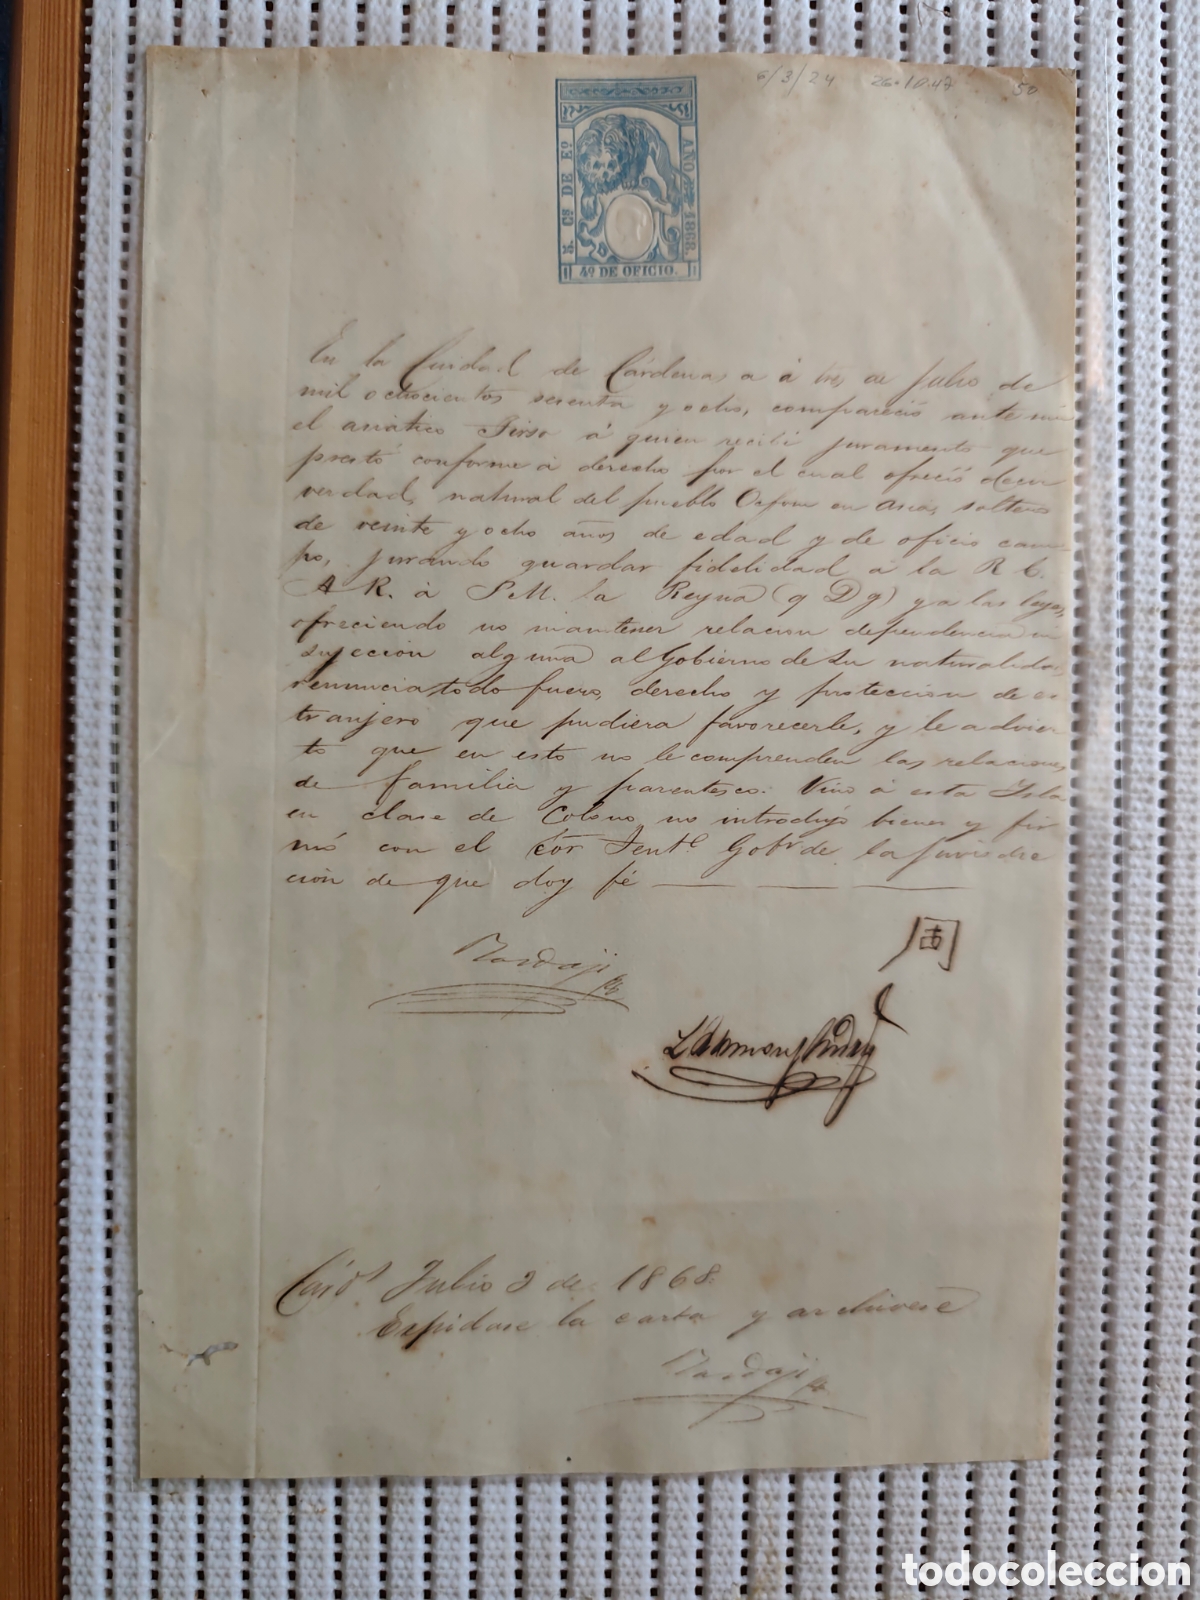 6/3/24 26-10-47 50
5 Cs DE Eo
AÑO 1868.
4º DE OFICIO.
En la Ciudad de Cárdenas a á tres de Julio de
mil ochocientos sesenta y ocho, compareció ante mi
el asiático Tirso á quien recibi juramento que
prestó conforme á derecho por el cual ofreció decir
verdad, natural del pueblo en Asia, soltero
de veinte y ocho años de edad y de oficio cam-
po, jurando guardar fidelidad á la R C.
A R. á S. M. la Reyna (q D g) y a las leyes,
ofreciendo no mantener relacion dependencia ni
sujecion alguna al Gobierno de su naturalidad,
renuncia todo fuero, derecho y proteccion de es
tranjero que pudiera favorecerle, y le advier
to que en esto no le comprenden las relaciones
de familia y parentesco. Vino á esta Isla
en clase de Colono, no introdujo bienes y fir
mó con el Sor Tente Gobr de la Jurisdic
cion de que doy fé
Bardaji
周
Cards Julio 3 de 1868.
Espidase la carta y archivese
Bardaji
todocoleccion